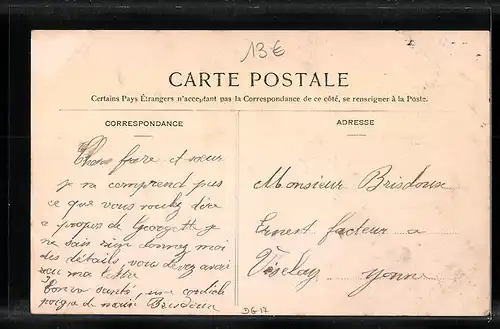 13€
CARTE POSTALE
Certains Pays Étrangers n'acceptant pas la Correspondance de ce côté, se renseigner à la Poste.
CORRESPONDANCE
Chers frère et sœur
je ne comprend pas
ce que vous voulez dire
a propos de Georgett je
ne sais rien donnez moi
des détails, vous devez avoir
ma lettre
Bonne santé, une cordiale
Brisdoux
ADRESSE
Monsieur Brisdoux
Ernest facteur a
Véselay Yonne
DG17